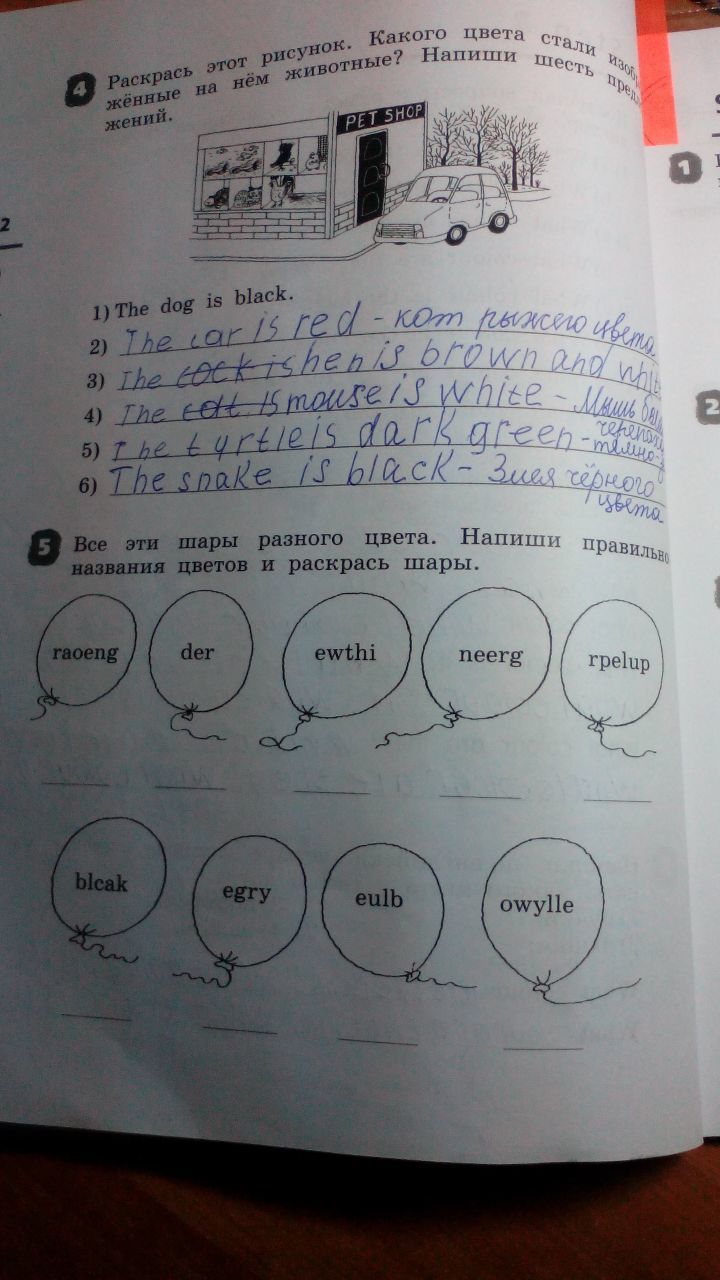 4 Раскрась этот рисунок. Какого цвета стали изобр
жённые на нём животные? Напиши шесть предл
жений.
PET SHOP
1) The dog is black.
2) The car is red - кот рыжего цвета
3) The cock is hen is brown and white
4) The cott is mouse is white - Мышь белы
5) The tyrtle is dark green - черепаха
тёмно-з
6) The snake is black - Змея чёрного
цвета
5 Все эти шары разного цвета. Напиши правильно
названия цветов и раскрась шары.
raoeng der ewthi neerg rpelup
blcak egry eulb owylle
2
1
2